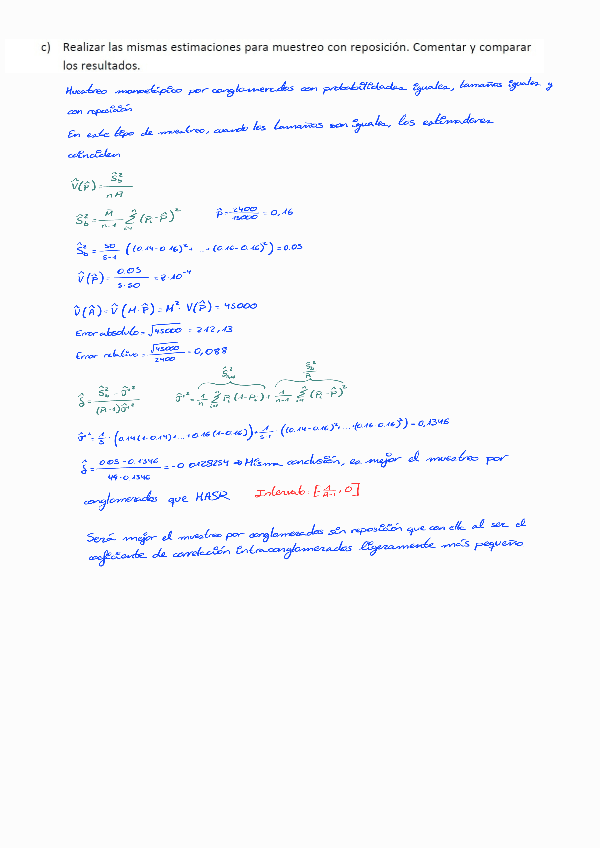 c) Realizar las mismas estimaciones para muestreo con reposición. Comentar y comparar
los resultados.
Muestreo monoetápico por conglomerados con probabilidades iguales, tamaños iguales y
con reposición
En este tipo de muestreo, cuando los tamaños son iguales, los estimadores
coinciden
V̂(P̂) = Ŝb² / nM̄
Ŝb² = M̄/(n-1) Σ (P̂i - P̂)²   P̂ = 2400/15000 = 0,16
Ŝb² = 50/(5-1) ((0.14-0.16)² + ... + (0.16-0.16)²) = 0.05
V̂(P̂) = 0.05/(5·50) = 2·10⁻⁴
V̂(Â) = V̂(M·P̂) = M²·V(P̂) = 45000
Error absoluto = √45000 = 212,13
Error relativo = √45000/2400 = 0,088
Ŝb²/M̄
σ̂² = 1/n Σ P̂i(1-P̂i) + 1/(n-1) Σ (P̂i-P̂)²
σ̂² = 1/5 · (0.14(1-0.14) + ... + 0.16(1-0.16)) + 1/(5-1) ((0.14-0.16)² + ... + (0.16-0.16)²) = 0,1346
δ̂ = (0.05-0.1346)/(49·0.1346) = -0.0128254 ⇒ Misma conclusión, es mejor el muestreo por
conglomerados que MASR   Intervalo: [-1/(M̄-1), 0]
Será mejor el muestreo por conglomerados sin reposición que con ella al ser el
coeficiente de correlación intraconglomerados ligeramente más pequeño